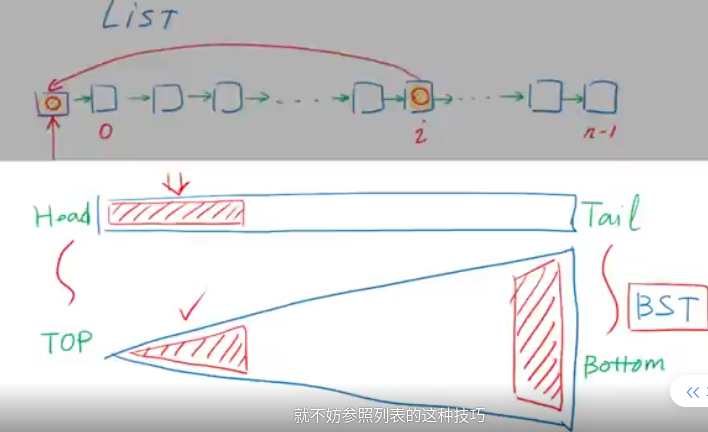 LIST
0
i
n-1
Head
Tail
BST
TOP
Bottom
就不妨参照列表的这种技巧